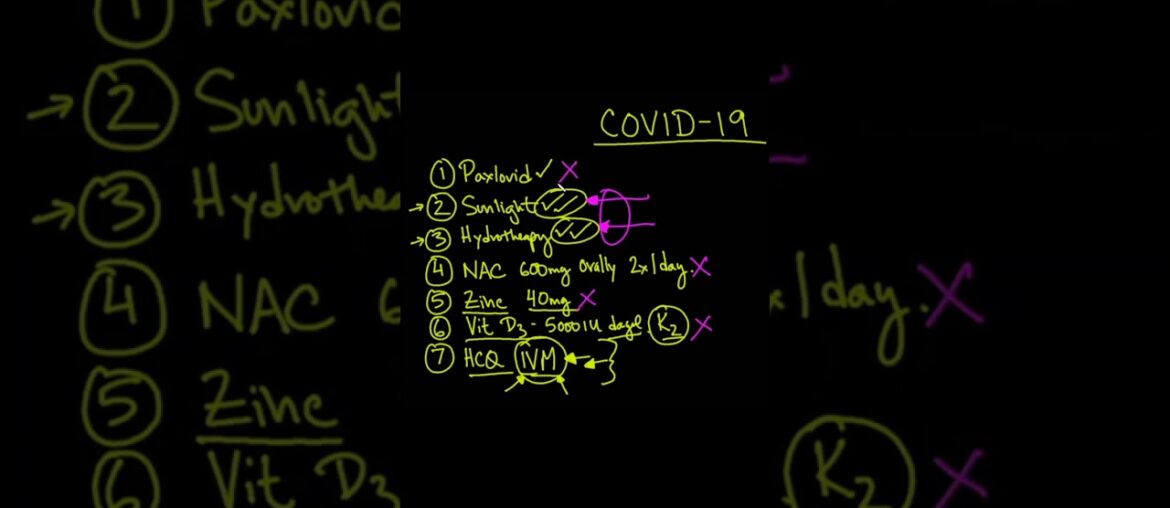 COVID-19
① Paxlovid ✓ X
→ ② Sunlight ✓✓
→ ③ Hydrotherapy ✓✓
④ NAC 600mg orally 2x/day. X
⑤ Zinc 40mg X
⑥ Vit D3 - 5000 IU K2 X
⑦ HCQ IVM